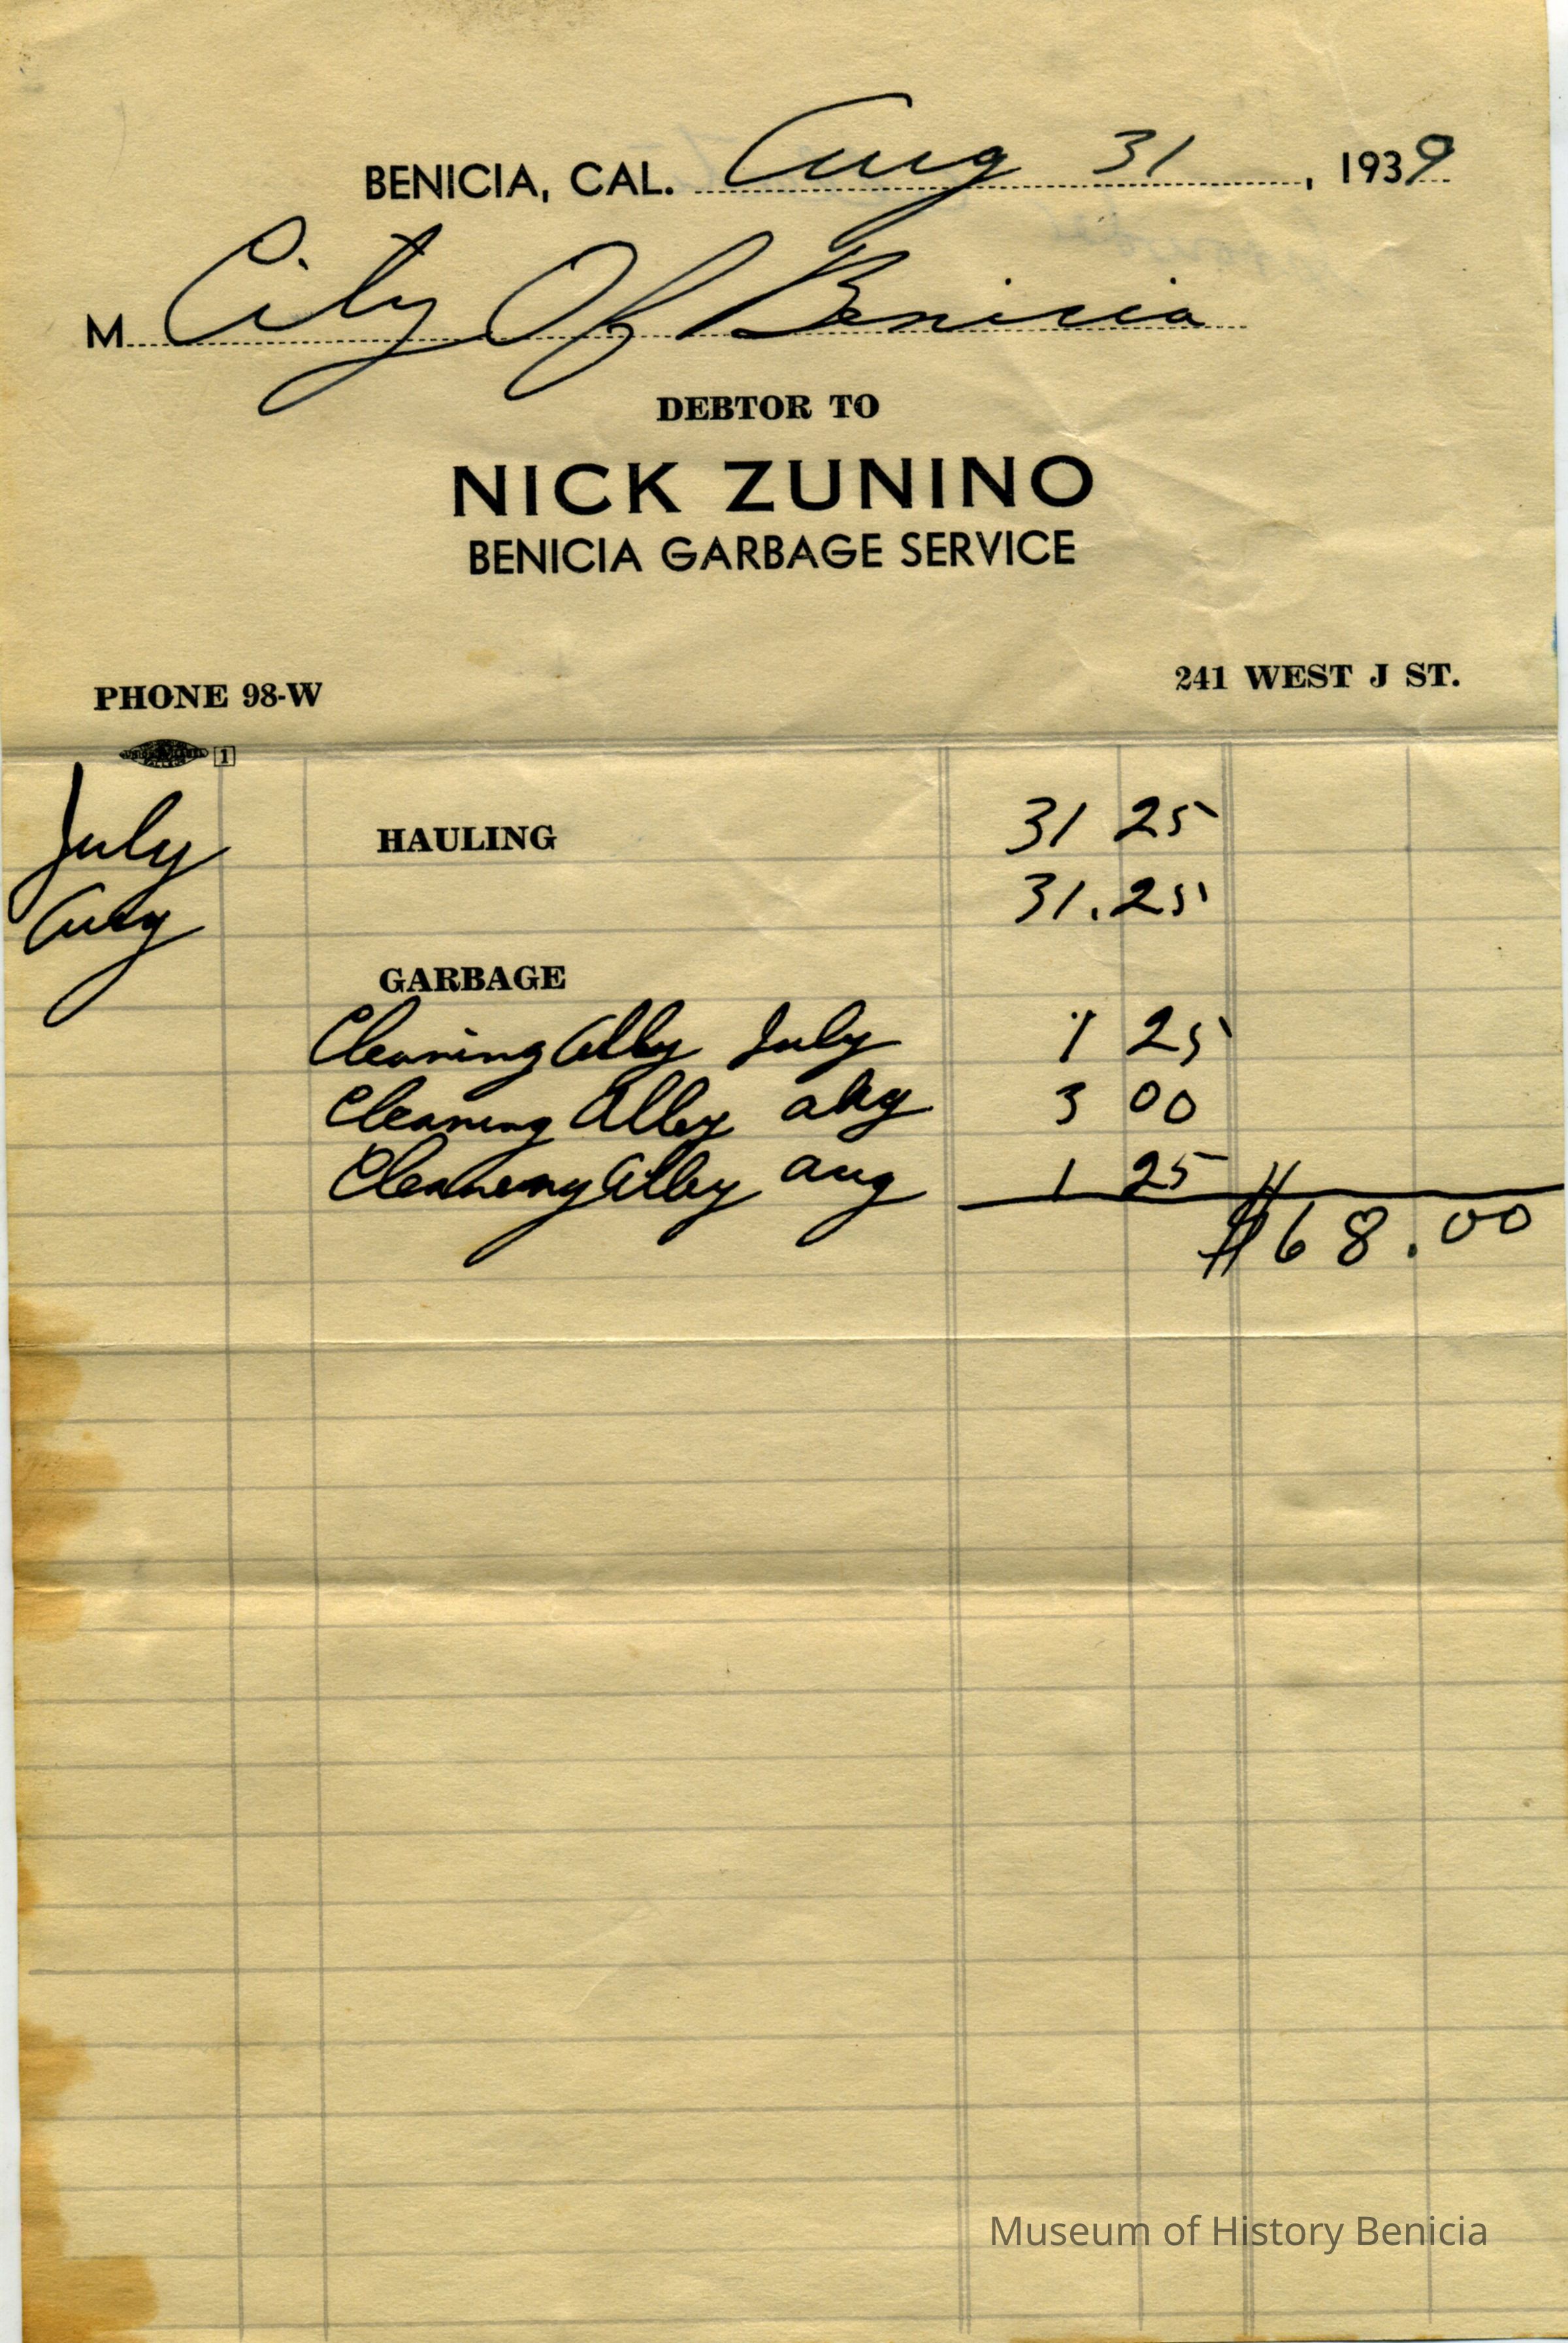 BENICIA, CAL. Aug 31, 1939
M City Of Benicia
DEBTOR TO
NICK ZUNINO
BENICIA GARBAGE SERVICE
PHONE 98-W 241 WEST J ST.
1
July HAULING 31 25
Aug 31.25
GARBAGE
Cleaning Alley July 1 25
Cleaning Alley Aug 3 00
Cleaning Alley Aug 1 25
$68.00
Museum of History Benicia